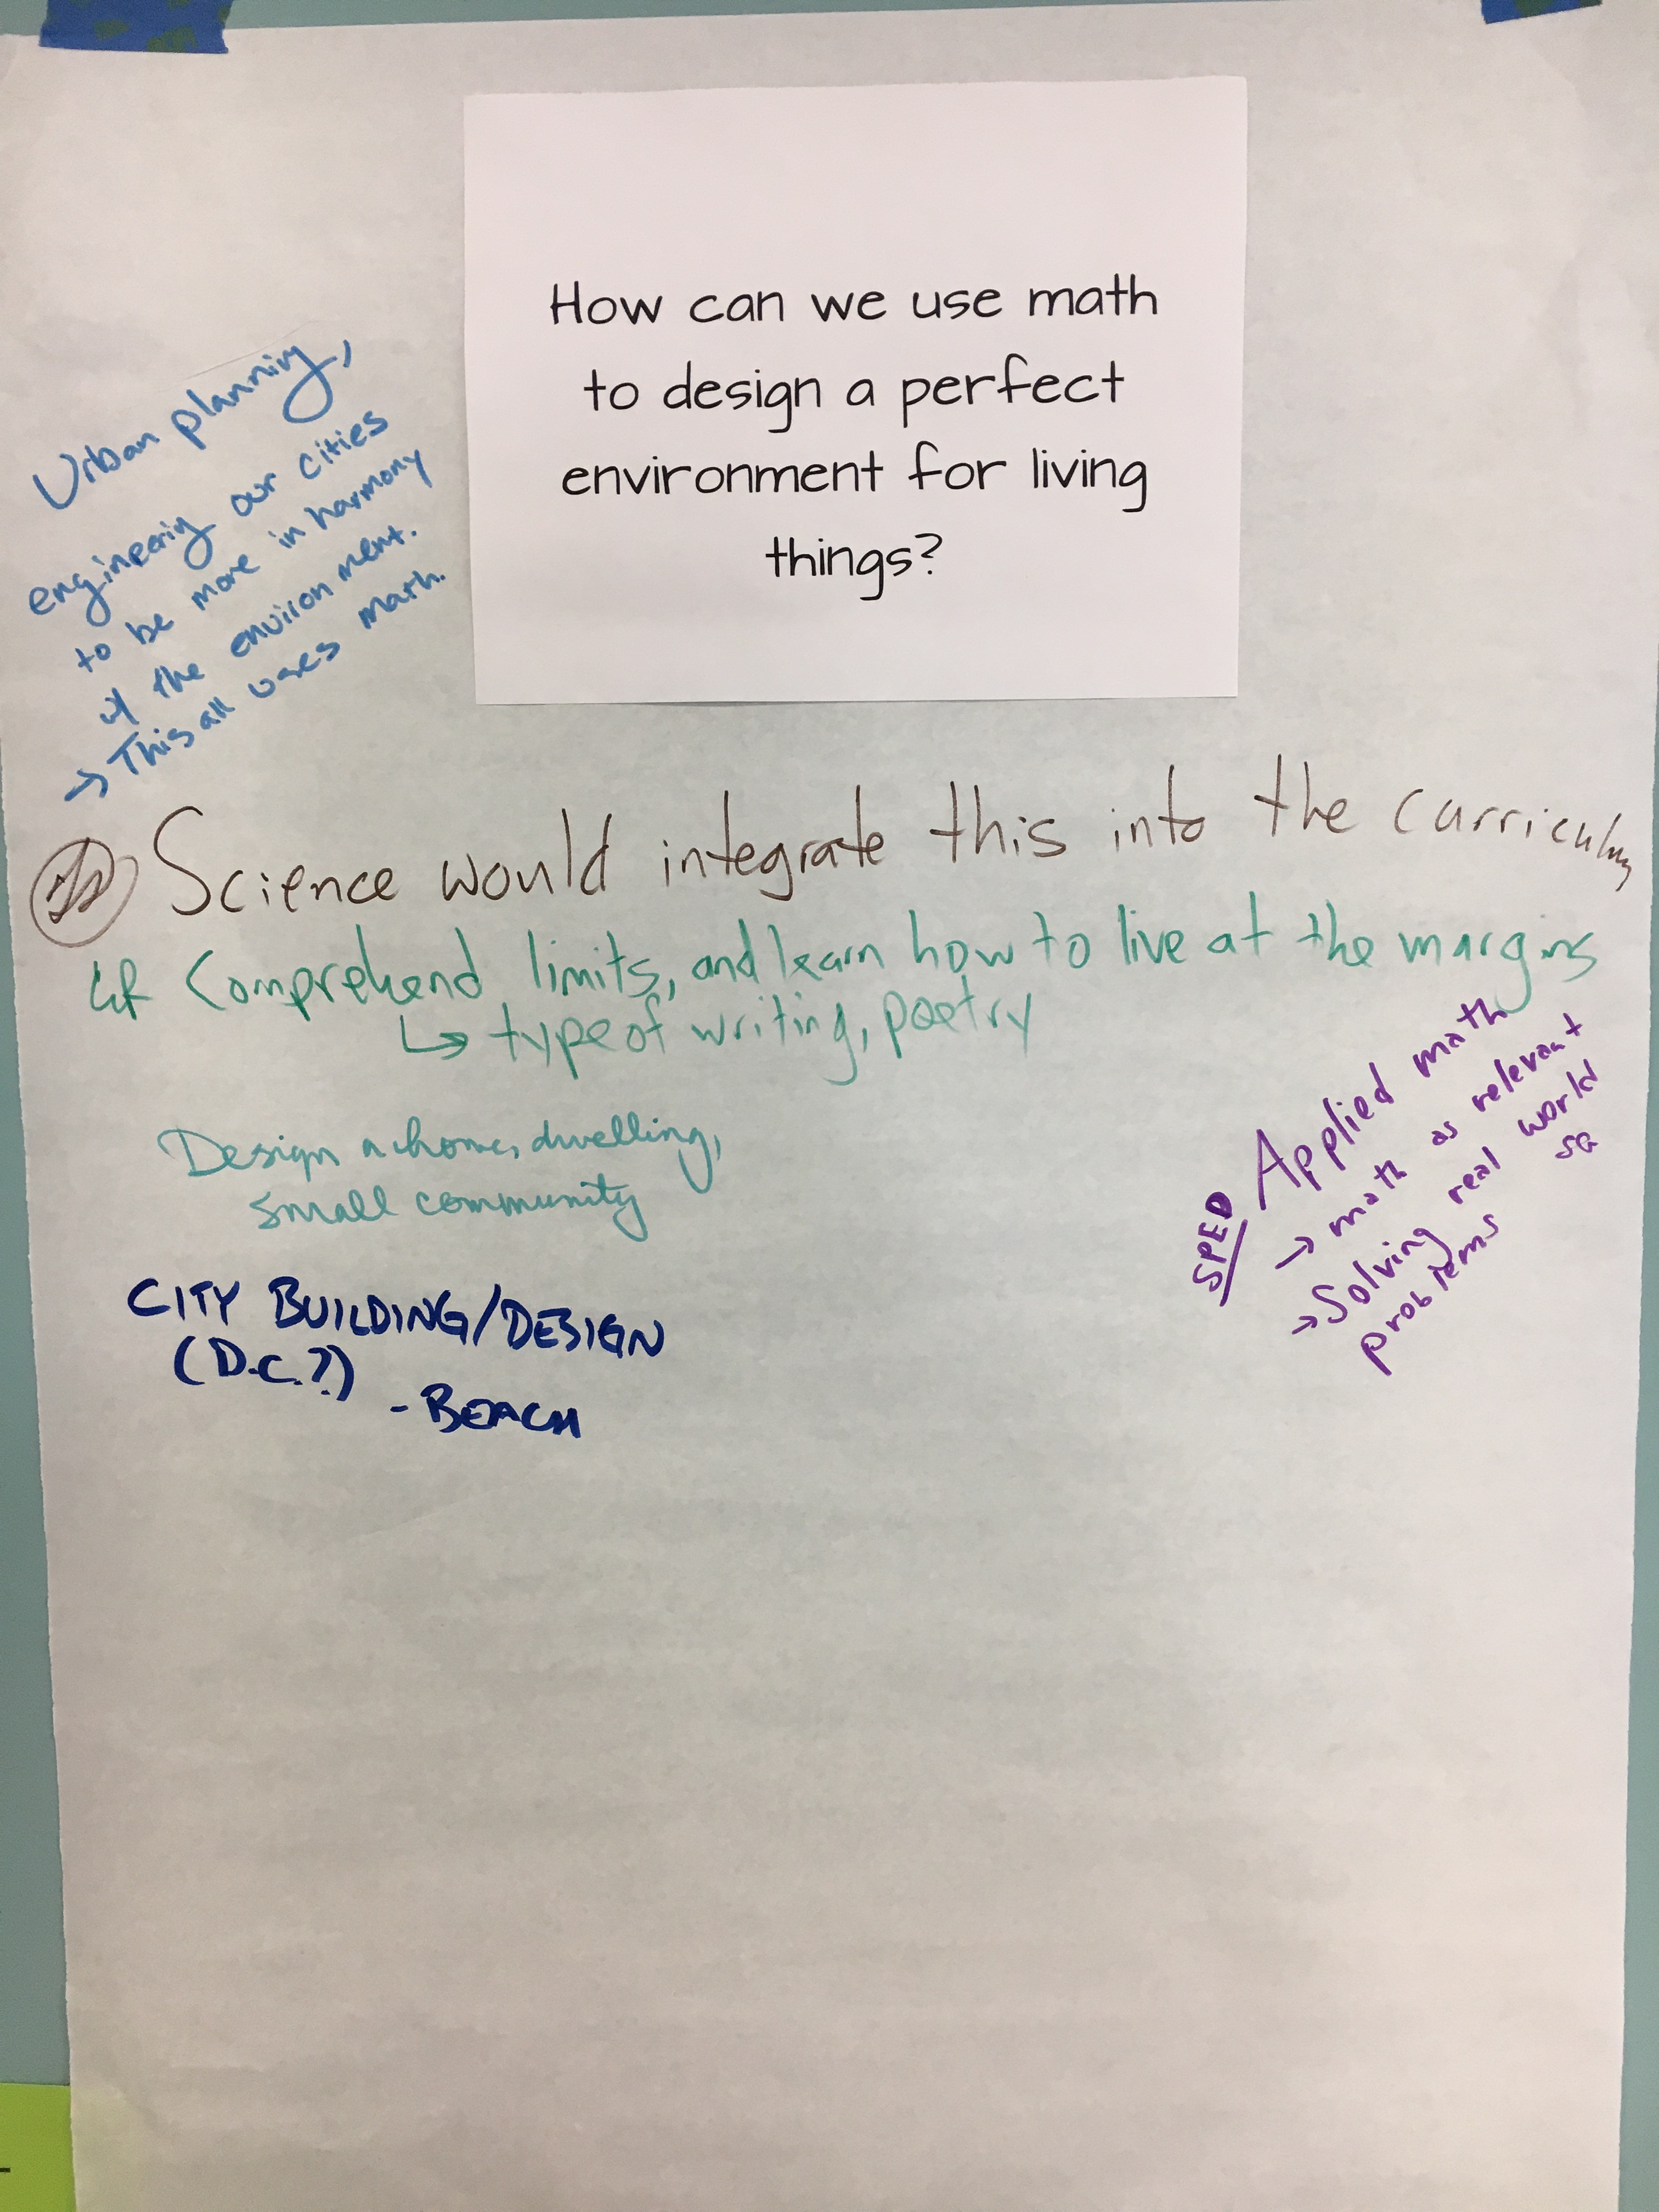 How can we use math
to design a perfect
environment for living
things?
Urban planning,
engineering our cities
to be more in harmony
w/ the environment.
→ This all uses math.
Science would integrate this into the curriculum
Comprehend limits, and learn how to live at the margins
↳ type of writing, poetry
SPED
Applied math
→ math as relevant
→ Solving real world
problems
Design a home, dwelling,
small community
CITY BUILDING/DESIGN
(D.C.?)
- BEACH